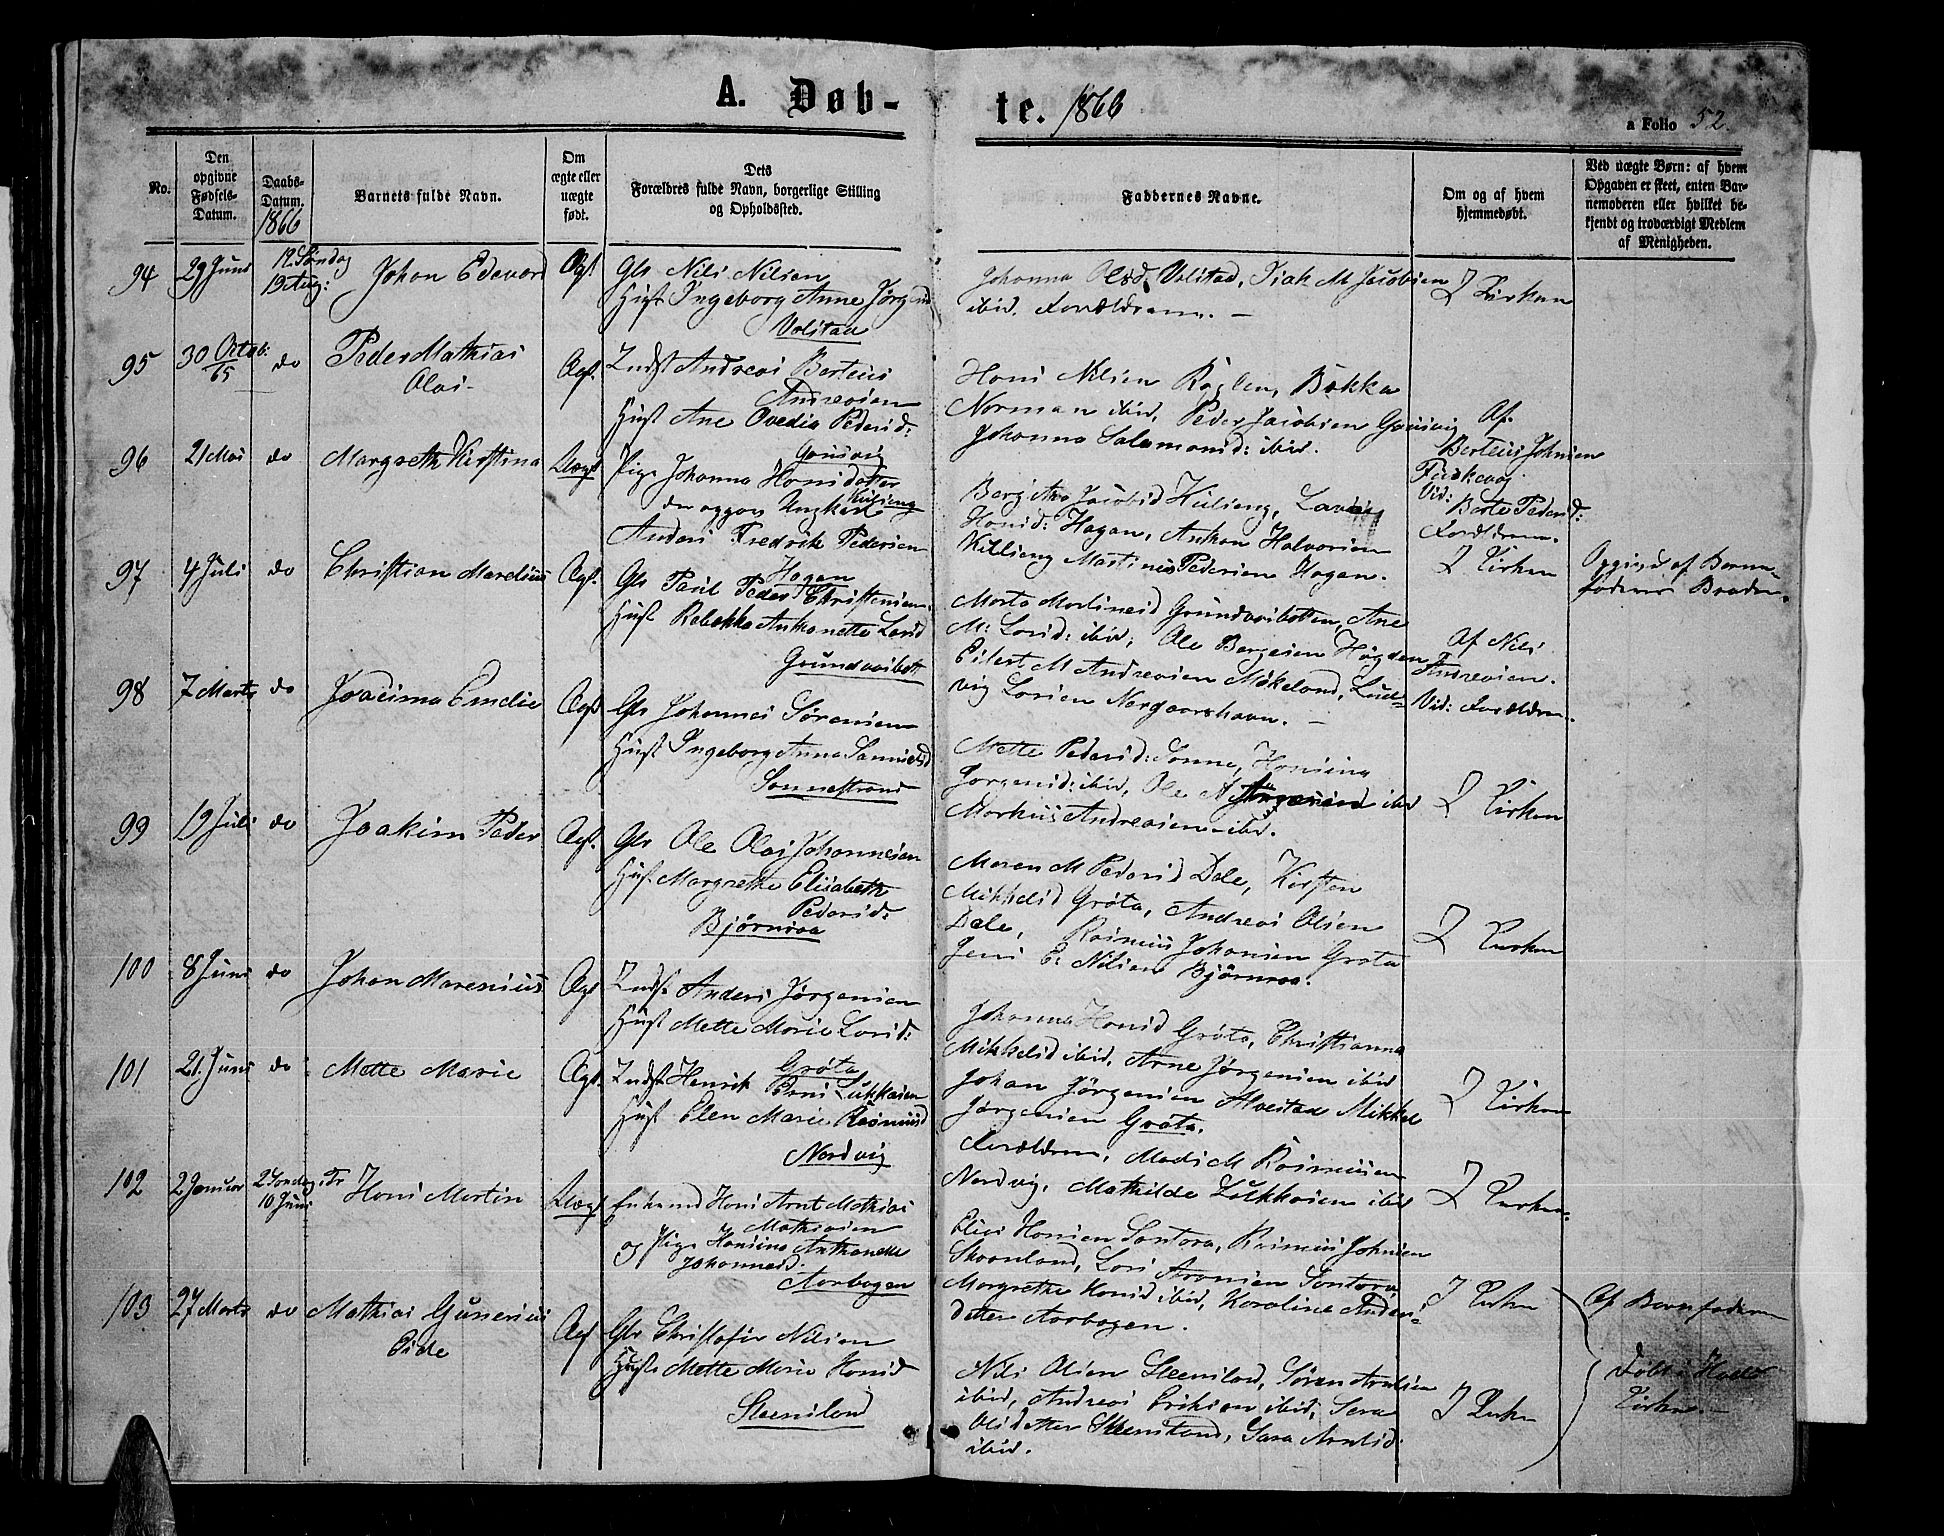 A. Døb- te. 1866
a Folio 52.
No.
Den opgivne Fødsels-Datum.
Daabs-Datum. 1866
Barnets fulde Navn.
Om ægte eller uægte født.
Dets Forældres fulde Navn, borgerlige Stilling og Opholdssted.
Faddernes Navne.
Om og af hvem hjemmedøbt.
Ved uægte Børn: af hvem Opgaven er skeet, enten Barnemoderen eller hvilket bekjendt og troværdigt Medlem af Menigheden.
94 29 Juni 12. Søndag 19 Aug: Johan Edevard Ægt
Nils Nilsen
Hust Ingeborg Anne Jørgensd
Volstad
Johanna Olsd. Volstad, Isak M Jacobsen
ibid. Forældrene. –
I Kirken
95 30 Octob: 65 do Peder Mathias
Olai
Ægt.
Indst Andreas Berteus
Andreasen
Hust Ane Ovedia Pedersd:
Gausvig
Hans Nilsen Røglen, Bekka
Norman ibid, Peder Jacobsen Gausvig
Johanna Salamonsd: ibid.
Af Berteus Johnsen
Vid: Berte Pedersd:
Forældrene.
96 21 Mai do Margreth Kirstina Uægt
Pige Johanna Hansdatter
Kilseng
og Ungkarl
Anders Fredrik Pedersen
Hagan
Jacobsd Kilseng,
Hansd: Hagan, Anthon Halvorsen
Killseng Martinus Pedersen Hagan.
I Kirken
Opgivet af Barnefaderens Broder.
97 4 Juli do Christian Marelius Ægt.
Paul Peder Christensen
Hust Rebekka Anthonette Larsd
Grundvasbott
Marta Martinesd Grundvasbotten, Ane
M: Larsd: ibid; Ole Borgesen Høgden
Eilert M Andreasen Møkeland, Lud-
vig Larsen Norgaarshavn. –
Af Nils
Andreasen.
Vid: Forældrene.
98 7 Marts do Joacima Emelie Ægt
Johannes Sørensen
Hust Ingeborg Anna Samuelsd
Sannestrand
Mette Pedersd: Sanne, Hansina
Jørgensd: ibid, Ole A ibid
Markus Andreasen ibid.
I Kirken
99 19 Juli do Joakim Peder Ægt.
Ole Olai Johannesen
Hust Margrethe Elisabeth
Pedersd:
Bjørnraa
Maren M Pedersd Dale, Kirsten
Mikkelsd Grøta, Andreas Olsen
Dale, Rasmus Johansen Grøta
Jens E: Nilsen Bjørnraa.
I Kirken
100 8 Juni do Johan Marenius Ægt
Indst. Anders Jørgensen
Hust Mette Marie Larsd:
Grøta
Johanna Hansd Grøta, Christianna
Mikkelsd ibid, Arne Jørgensen ibid
Johan Jørgensen Alvestad Mikkel
Jørgensen Grøta.
I Kirken
101 21 Juni do Mette Marie Ægt
Indst Henrik Lukkasen
Hust Elen Marie Rasmusd
Nordvig
Forældrene, Mads M Rasmusen
Nordvig, Mathilde Lukkasen ibid
I Kirken.
102 2 Januar 2 Søndag e Tr 10 Juni Hans Martin Uægt
Enkemd Hans Arnt Mathias
Mathiasen
og Pige Hansina Anthonette
Johannesd.
Aarbogen
Elias Hansen Santora, Rasmus Johnsen
Skaanland, Lars Aronsen Santora
Margrethe Hansd ibid, Karoline Anders-
datter Aarbogen.
I Kirken
Af Barnefaderen
103 27 Marts do Mathias Gunerius
Eide
Ægt
Christofer Nilsen
Hust Mette Marie Hansd
Steensland
Nils Olsen Steensland, Søren Arntsen
ibid, Andreas Eriksen ibid, Sara
Olsdatter Steensland, Sara Arntsd
ibid.
I Kirken
Døbt i
Kirke. –